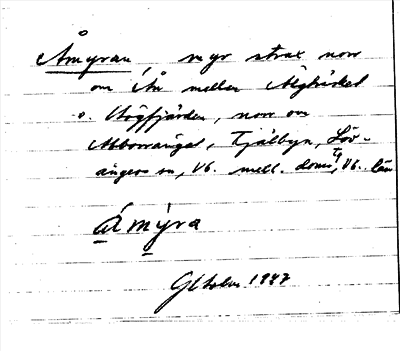 Åmyran, myr strax norr
om Ån mellan Algträsket
o. Högfjärden, norr om
Abborranäset, Fjälbyn, Löv-
ångers sn, Vb. mell. doms, Vb. län
åmýra
G Holm 1947